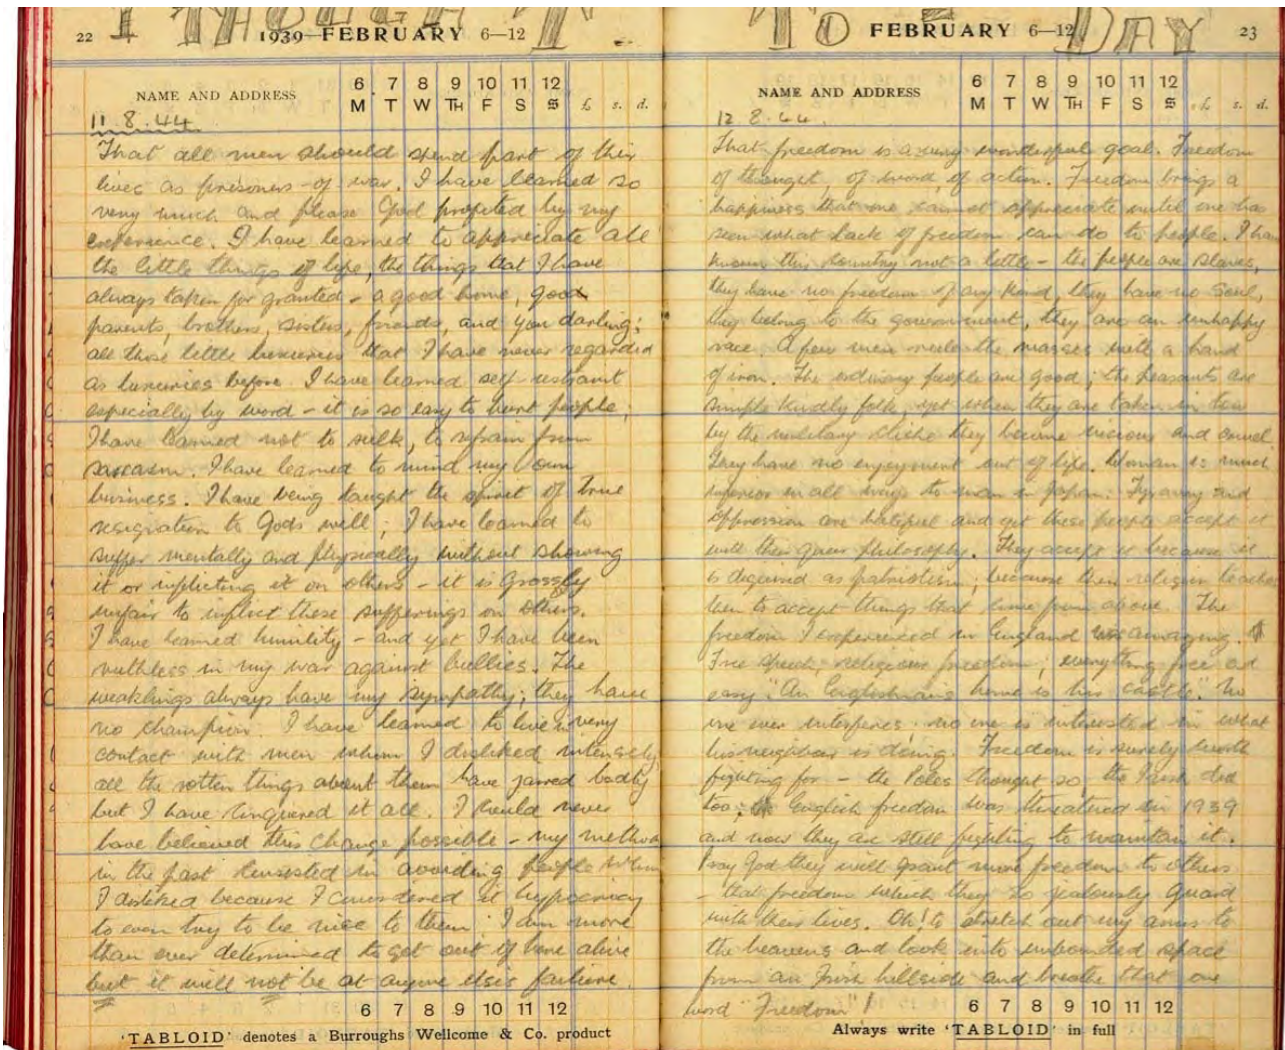 I THOUGHT
22 1939—FEBRUARY 6—12
NAME AND ADDRESS
6 7 8 9 10 11 12
M T W TH F S S £ s. d.
11.8.44
That all men should spend part of their
lives as prisoners-of war. I have learned so
very much and please God profited by my
experience. I have learned to appreciate all
the little things of life, the things that I have
always taken for granted - a good home, good
parents, brothers, sisters, friends, and you darling;
all those little luxuries that I have never regarded
as luxuries before. I have learned self-restraint
especially by word - it is so easy to hurt people;
I have learned not to sulk, to refrain from
sarcasm. I have learned to mind my own
business. I have being taught the spirit of true
resignation to Gods will; I have learned to
suffer mentally and physically without showing
it or inflicting it on others - it is grossly
unfair to inflict these sufferings on others.
I have learned humility - and yet I have been
ruthless in my war against bullies. The
weaklings always have my sympathy; they have
no champion. I have learned to live in very
contact with men whom I disliked intensely
all the rotten things about them have jarred badly
but I have conquered it all. I would never
have believed this change possible - my method
in the past consisted in avoiding people whom
I disliked because I considered it hypocrisy
to even try to be nice to them. I am more
than ever determined to get out of here alive
but it will not be at anyone else's failure.
6 7 8 9 10 11 12
'TABLOID' denotes a Burroughs Wellcome & Co. product
TO-DAY
FEBRUARY 6—12 23
NAME AND ADDRESS
6 7 8 9 10 11 12
M T W TH F S S £ s. d.
12.8.44.
That freedom is a very wonderful goal. Freedom
of thought, of word, of action. Freedom brings a
happiness that one cannot appreciate until one has
seen what lack of freedom can do to people. I have
known this country not a little - the people are slaves,
they have no freedom of any kind, they have no soul,
they belong to the government, they are an unhappy
race. A few men rule the masses with a hand
of iron. The ordinary people are good; the peasants are
simple kindly folk, yet when they are taken in tow
by the military cliche they become vicious and cruel
They have no enjoyment out of life. Woman is much
inferior in all ways to man in Japan. Tyranny and
oppression are hateful and yet these people accept it
with their queer philosophy. They accept it because it
is disguised as patriotism; because their religion teaches
them to accept things that come from above. The
freedom I experienced in England was amazing.
Free speech, religious freedom; everything free and
easy "An Englishman's home is his castle". No
one ever interferes. no one is interested in what
his neighbour is doing. Freedom is surely worth
fighting for - the Poles thought so, the Irish did
too; English freedom was threatened in 1939
and now they are still fighting to maintain it.
Pray God they will grant more freedom to others
- that freedom which they so jealously guard
with their lives. Oh! to stretch out my arms to
the heavens and look into unbounded space
from an Irish hillside and breathe that one
word "Freedom"!
6 7 8 9 10 11 12
Always write 'TABLOID' in full